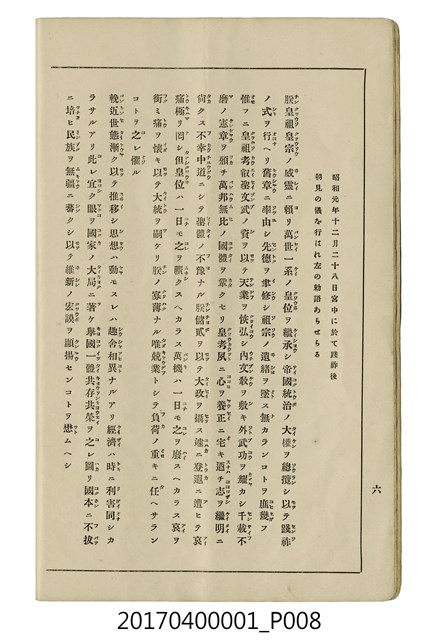 昭和元年十二月二十八日宮中に於て踐祚後
朝見の儀を行はれ左の勅語あらせらる
朕皇祖皇宗ノ威靈ニ頼リ萬世一系ノ皇位ヲ繼承シ帝國統治ノ大權ヲ總攬シ以テ踐祚
ノ式ヲ行ヘリ舊章ニ率由シ先德ヲ聿修シ祖宗ノ遺緒ヲ墜ス無カランコトヲ庶幾フ
惟フニ皇祖考叡聖文武ノ資ヲ以テ天業ヲ恢弘シ内文敎ヲ敷キ外武功ヲ耀カシ千載不
磨ノ憲章ヲ頒チ萬邦無比ノ國體ヲ鞏クセリ皇考夙ニ心ヲ養正ニ宅キ遹チ志ヲ繼明ニ
尙クス不幸中道ニシテ聖體ノ不豫ナル朕儲貳ヲ以テ大政ヲ攝ス遽ニ登遐ニ遭ヒテ哀
痛極リ罔シ但皇位ハ一日モ之ヲ曠クスヘカラス萬機ハ一日モ之ヲ廢スヘカラス哀ヲ
銜ミ痛ヲ懷キ以テ大統ヲ嗣ケリ朕ノ寡薄ナル唯兢業トシテ負荷ノ重キニ任ヘサラン
コトヲ之レ懼ル
輓近世態漸ク以テ推移シ思想ハ動モスレハ趣舍相異ナルアリ經濟ハ時ニ利害同シカ
ラサルアリ此レ宜ク眼ヲ國家ノ大局ニ著ケ擧國一體共存共榮ヲ之レ圖リ國本ニ不拔
ニ培ヒ民族ヲ無疆ニ蕃クシ以テ維新ノ宏謨ヲ顯揚センコトヲ懋ムヘシ
六
20170400001_P008